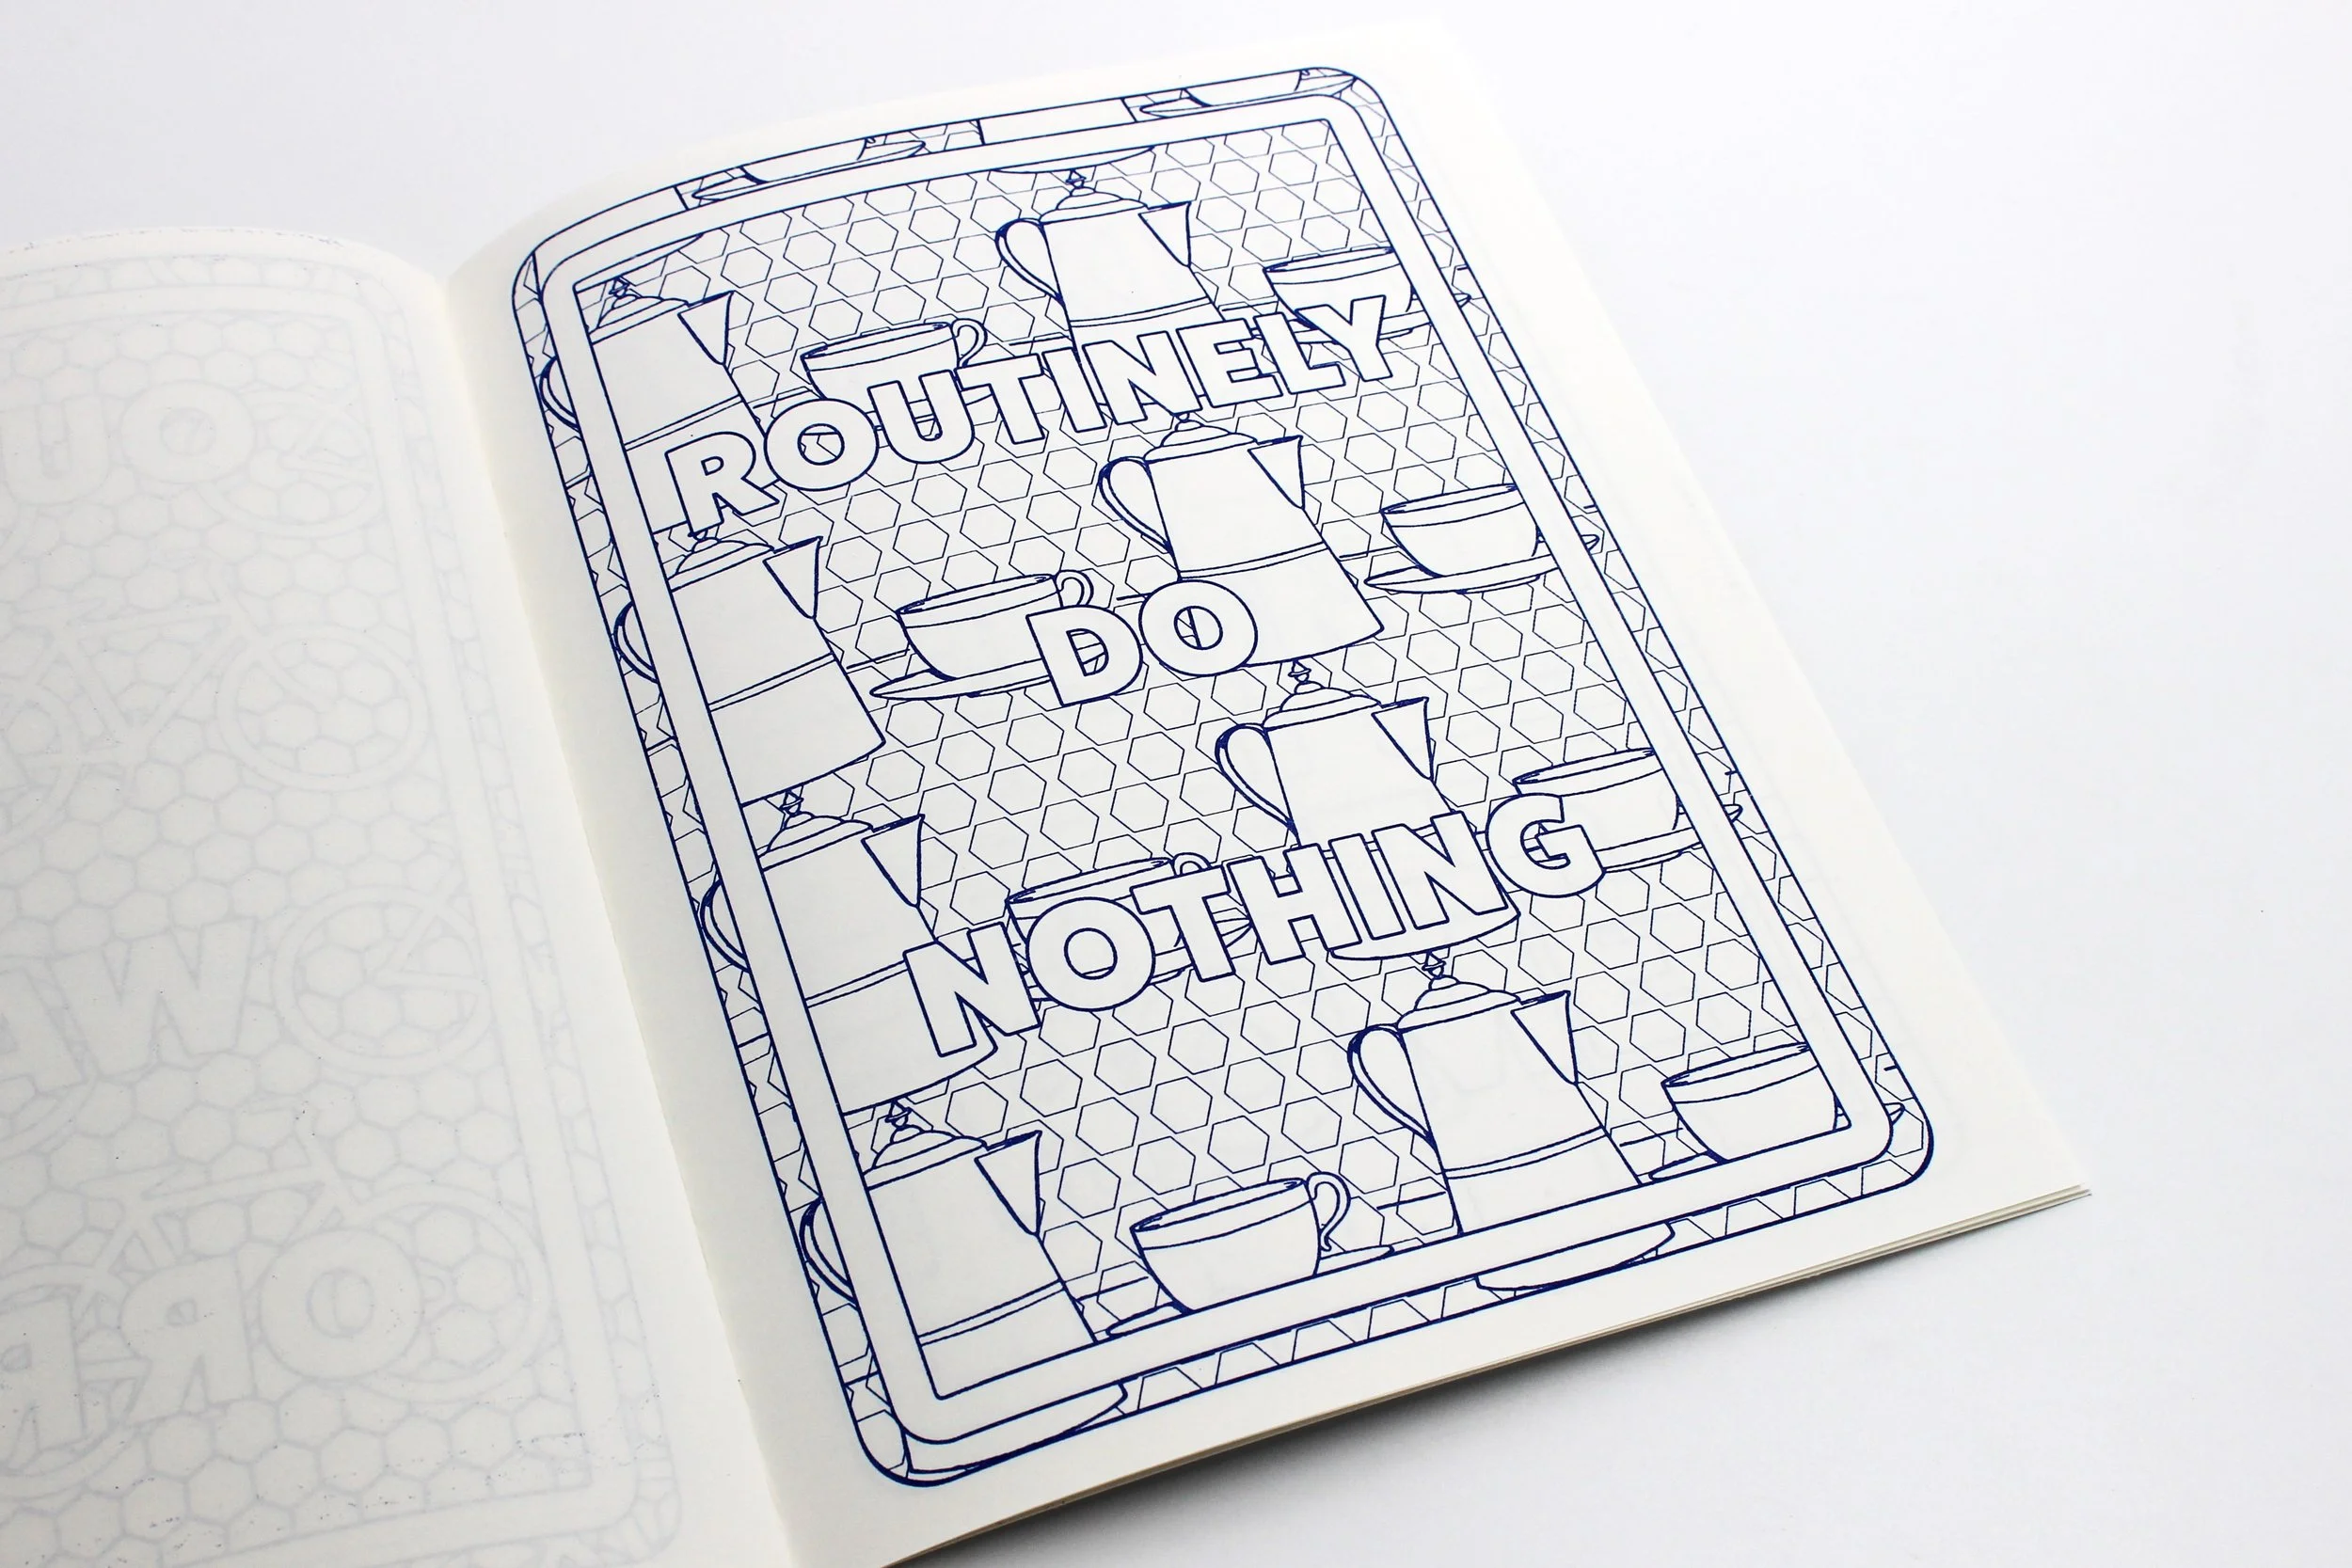 ROUTINELY
DO
NOTHING